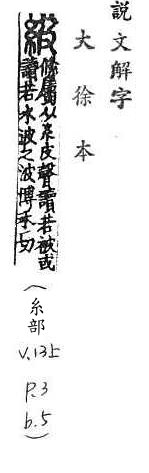 說文解字
大徐本
紴 絛屬从糸皮聲讀若被或
讀若水波之波博禾切
(糸部
V.13上
P.3
b.5)